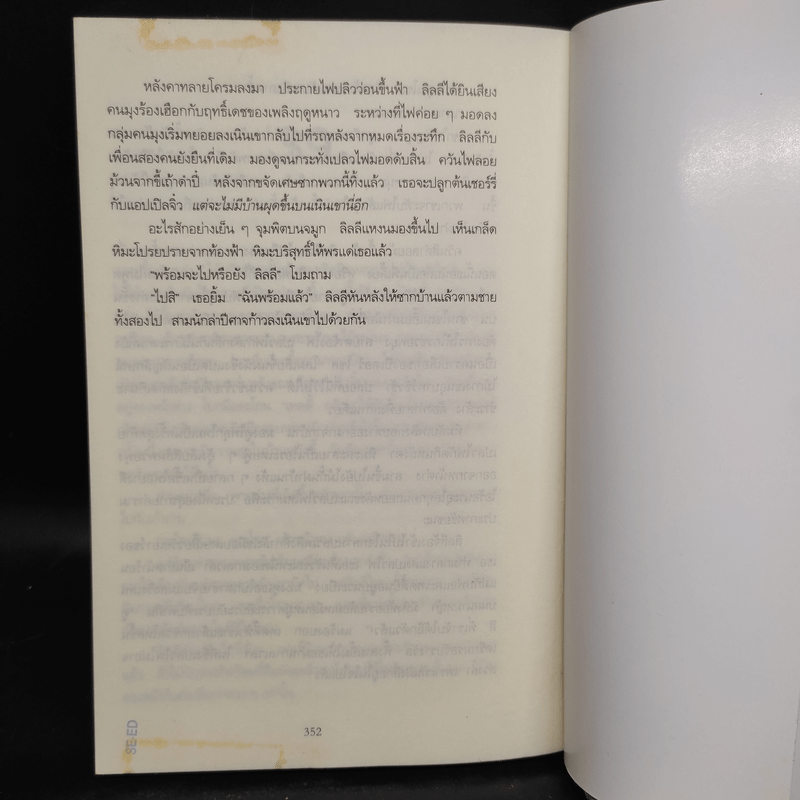 หลังคาทลายโครมลงมา ประกายไฟปลิวว่อนขึ้นฟ้า ลิลลีได้ยินเสียง
คนมุงร้องเฮือกกับฤทธิ์เดชของเพลิงฤดูหนาว ระหว่างที่ไฟค่อย ๆ มอดลง
กลุ่มคนมุงเริ่มทยอยลงเนินเขากลับไปที่รถหลังจากหมดเรื่องระทึก ลิลลีกับ
เพื่อนสองคนยังยืนที่เดิม มองดูจนกระทั่งเปลวไฟมอดดับสิ้น ควันไฟลอย
ม้วนจากขี้เถ้าดำปี๋ หลังจากขจัดเศษซากพวกนี้ทิ้งแล้ว เธอจะปลูกต้นเชอร์รี่
กับแอปเปิลจิ๋ว แต่จะไม่มีบ้านผุดขึ้นบนเนินเขานี้อีก
อะไรสักอย่างเย็น ๆ จุมพิตบนจมูก ลิลลีแหงนมองขึ้นไป เห็นเกล็ด
หิมะโปรยปรายจากท้องฟ้า หิมะบริสุทธิ์ให้พรแด่เธอแล้ว
"พร้อมจะไปหรือยัง ลิลลี" โบมถาม
"ไปสิ" เธอยิ้ม "ฉันพร้อมแล้ว" ลิลลีหันหลังให้ซากบ้านแล้วตามชาย
ทั้งสองไป สามนักล่าปีศาจก้าวลงเนินเขาไปด้วยกัน
352
SE-ED